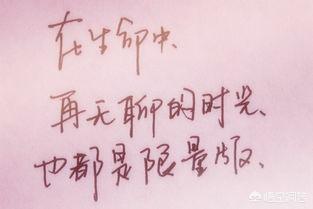 在生命中、
再无聊的时光、
也都是限量版、
悟空问答